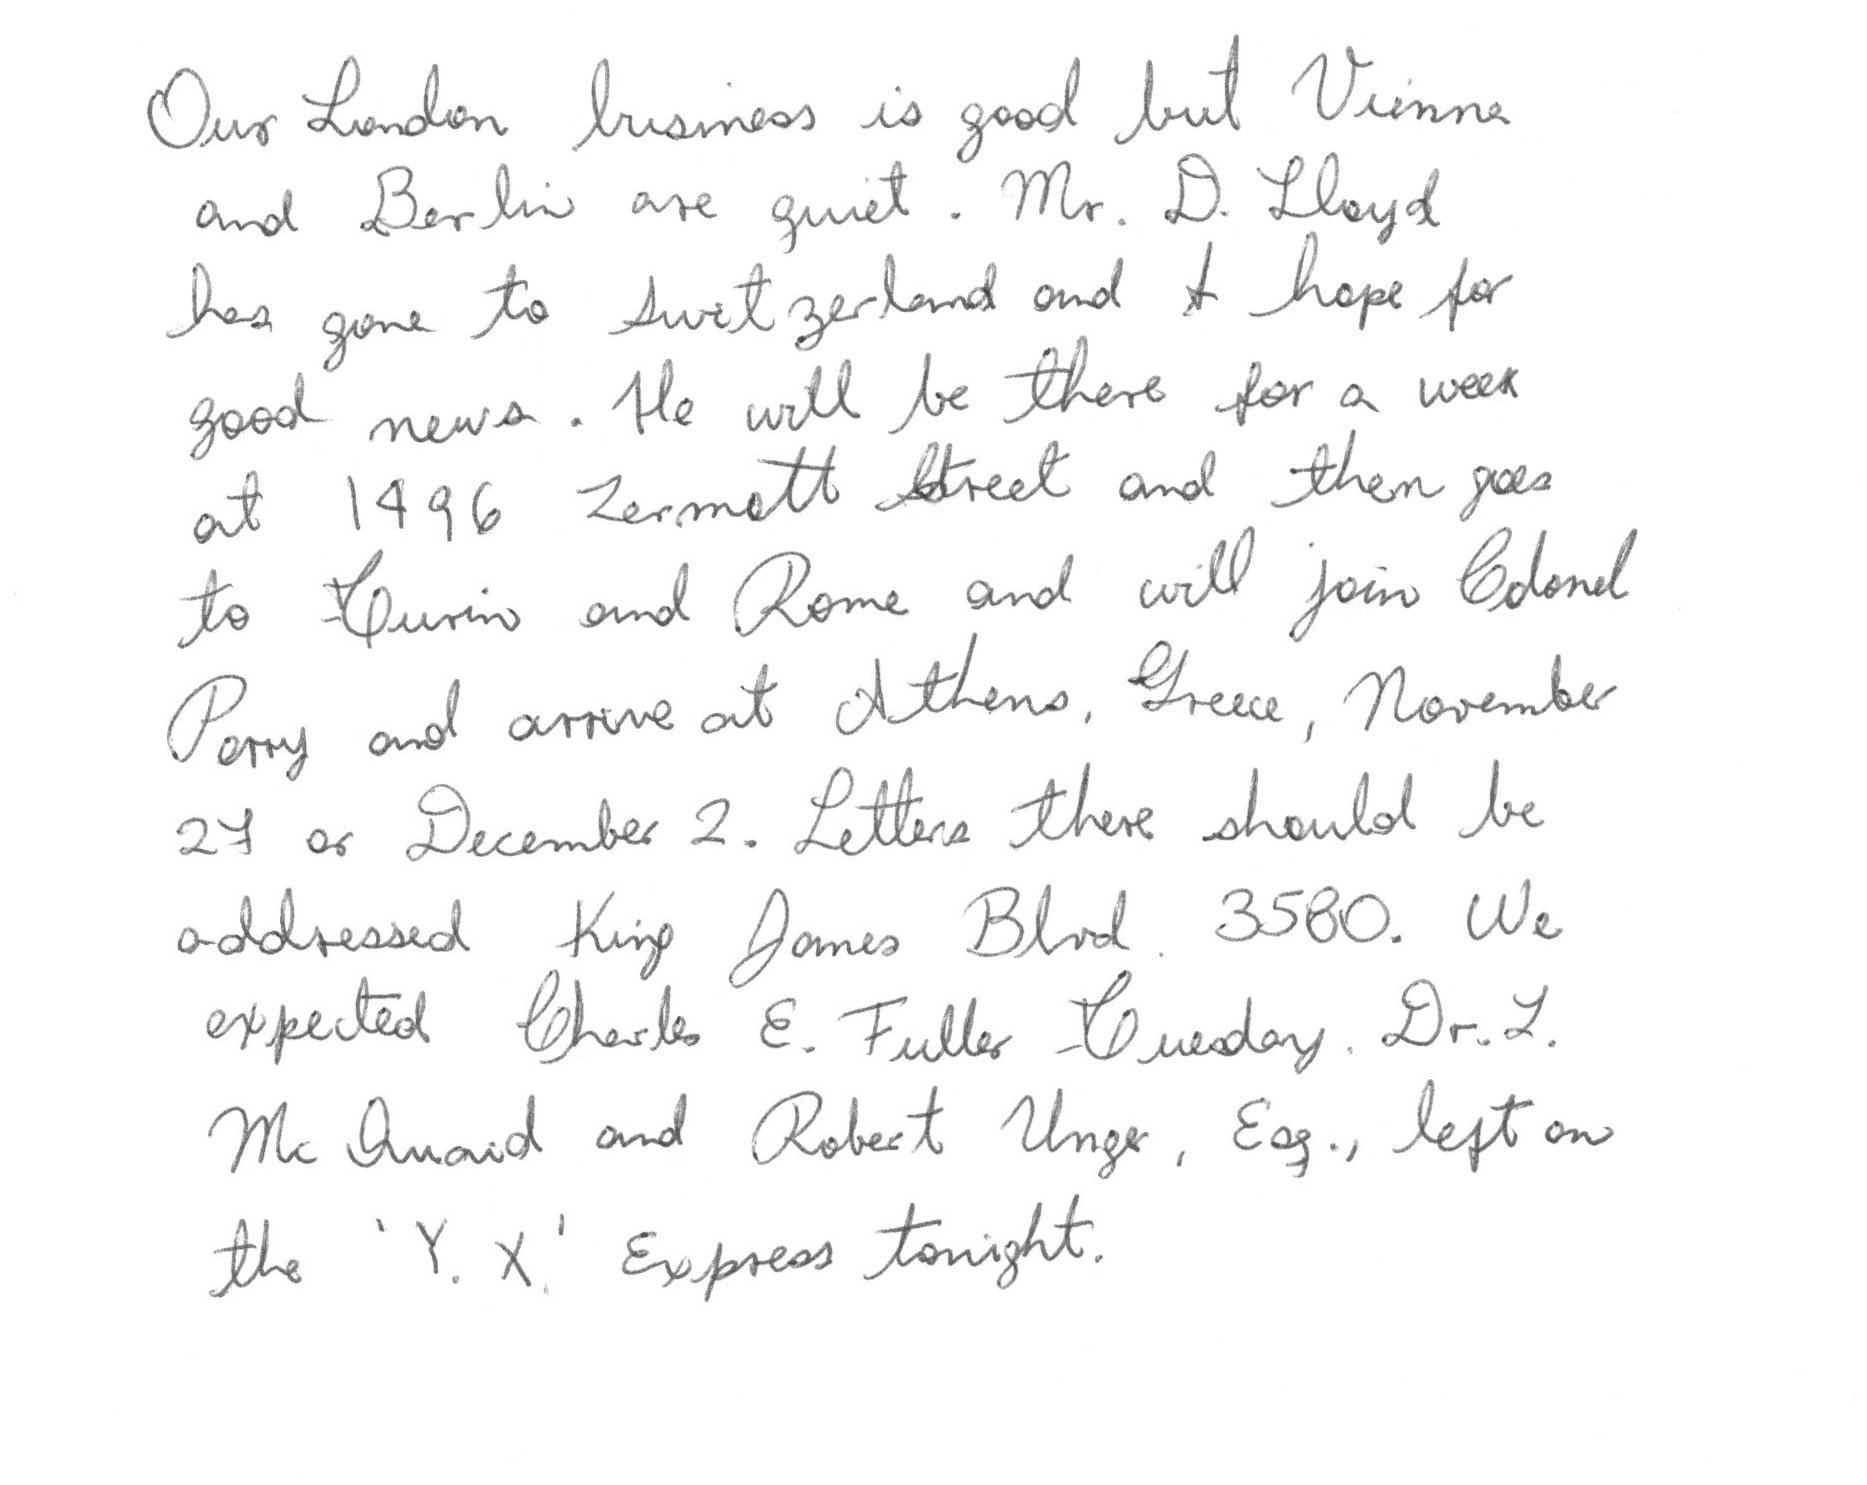 Our London business is good but Vienna
and Berlin are quiet. Mr. D. Lloyd
has gone to Switzerland and I hope for
good news. He will be there for a week
at 1496 Zermott Street and then goes
to Turin and Rome and will join Colonel
Perry and arrive at Athens, Greece, November
27 or December 2. Letters there should be
addressed King James Blvd. 3580. We
expected Charles E. Fuller Tuesday. Dr. L.
Mc Quaid and Robert Unger, Esq., left on
the 'Y. X.' Express tonight.